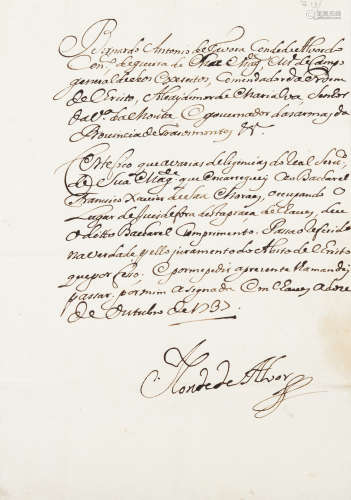 Bernardo Antonio de Tavora Conde de Alvor do
Con.º de guerra de Sua Mag.e M.e de Campo
general de seos exercitos, Comendador da Ordem
de Cristo, Alcaydemor de Maria lva Senhor
da V.ª da Moita Governador das armas da
Provincia de trasosmontes &.ª
Certefico que a varias deligencias do real Serv.º
de Sua Mag.e que emcarreguei ao Bacharel
Francisco Xavier da Sa Moraes, ocupando o
Lugar de Juis de fora desta praça de Chaves, deu
o ditto Bacharel Comprimento. Passa o referido
na verdade pello juramento do Abito de Cristo
que por feso. E por me pedir a prezente lla mandei
passar, por mim asignada em Chaves, a doze
de Outubro de 1737
Conde de Alvor